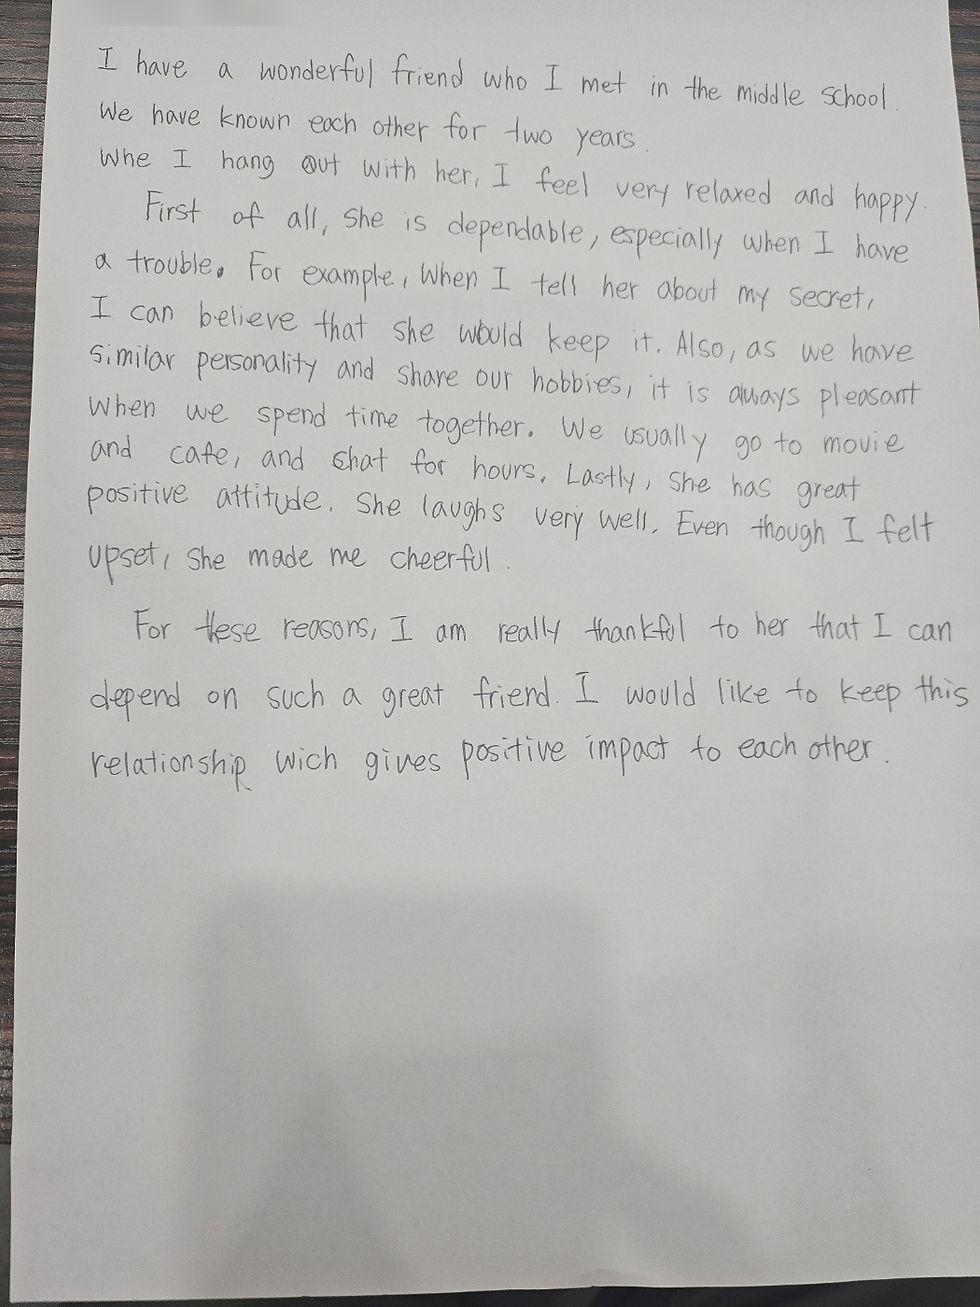 I have a wonderful friend who I met in the middle school.
We have known each other for two years.
Whe I hang out with her, I feel very relaxed and happy.
First of all, she is dependable, especially when I have
a trouble. For example, when I tell her about my secret,
I can believe that she would keep it. Also, as we have
similar personality and share our hobbies, it is always pleasant
when we spend time together. We usually go to movie
and cafe, and chat for hours. Lastly, she has great
positive attitude. She laughs very well. Even though I felt
upset, she made me cheerful.
For these reasons, I am really thankful to her that I can
depend on such a great friend. I would like to keep this
relationship wich gives positive impact to each other.